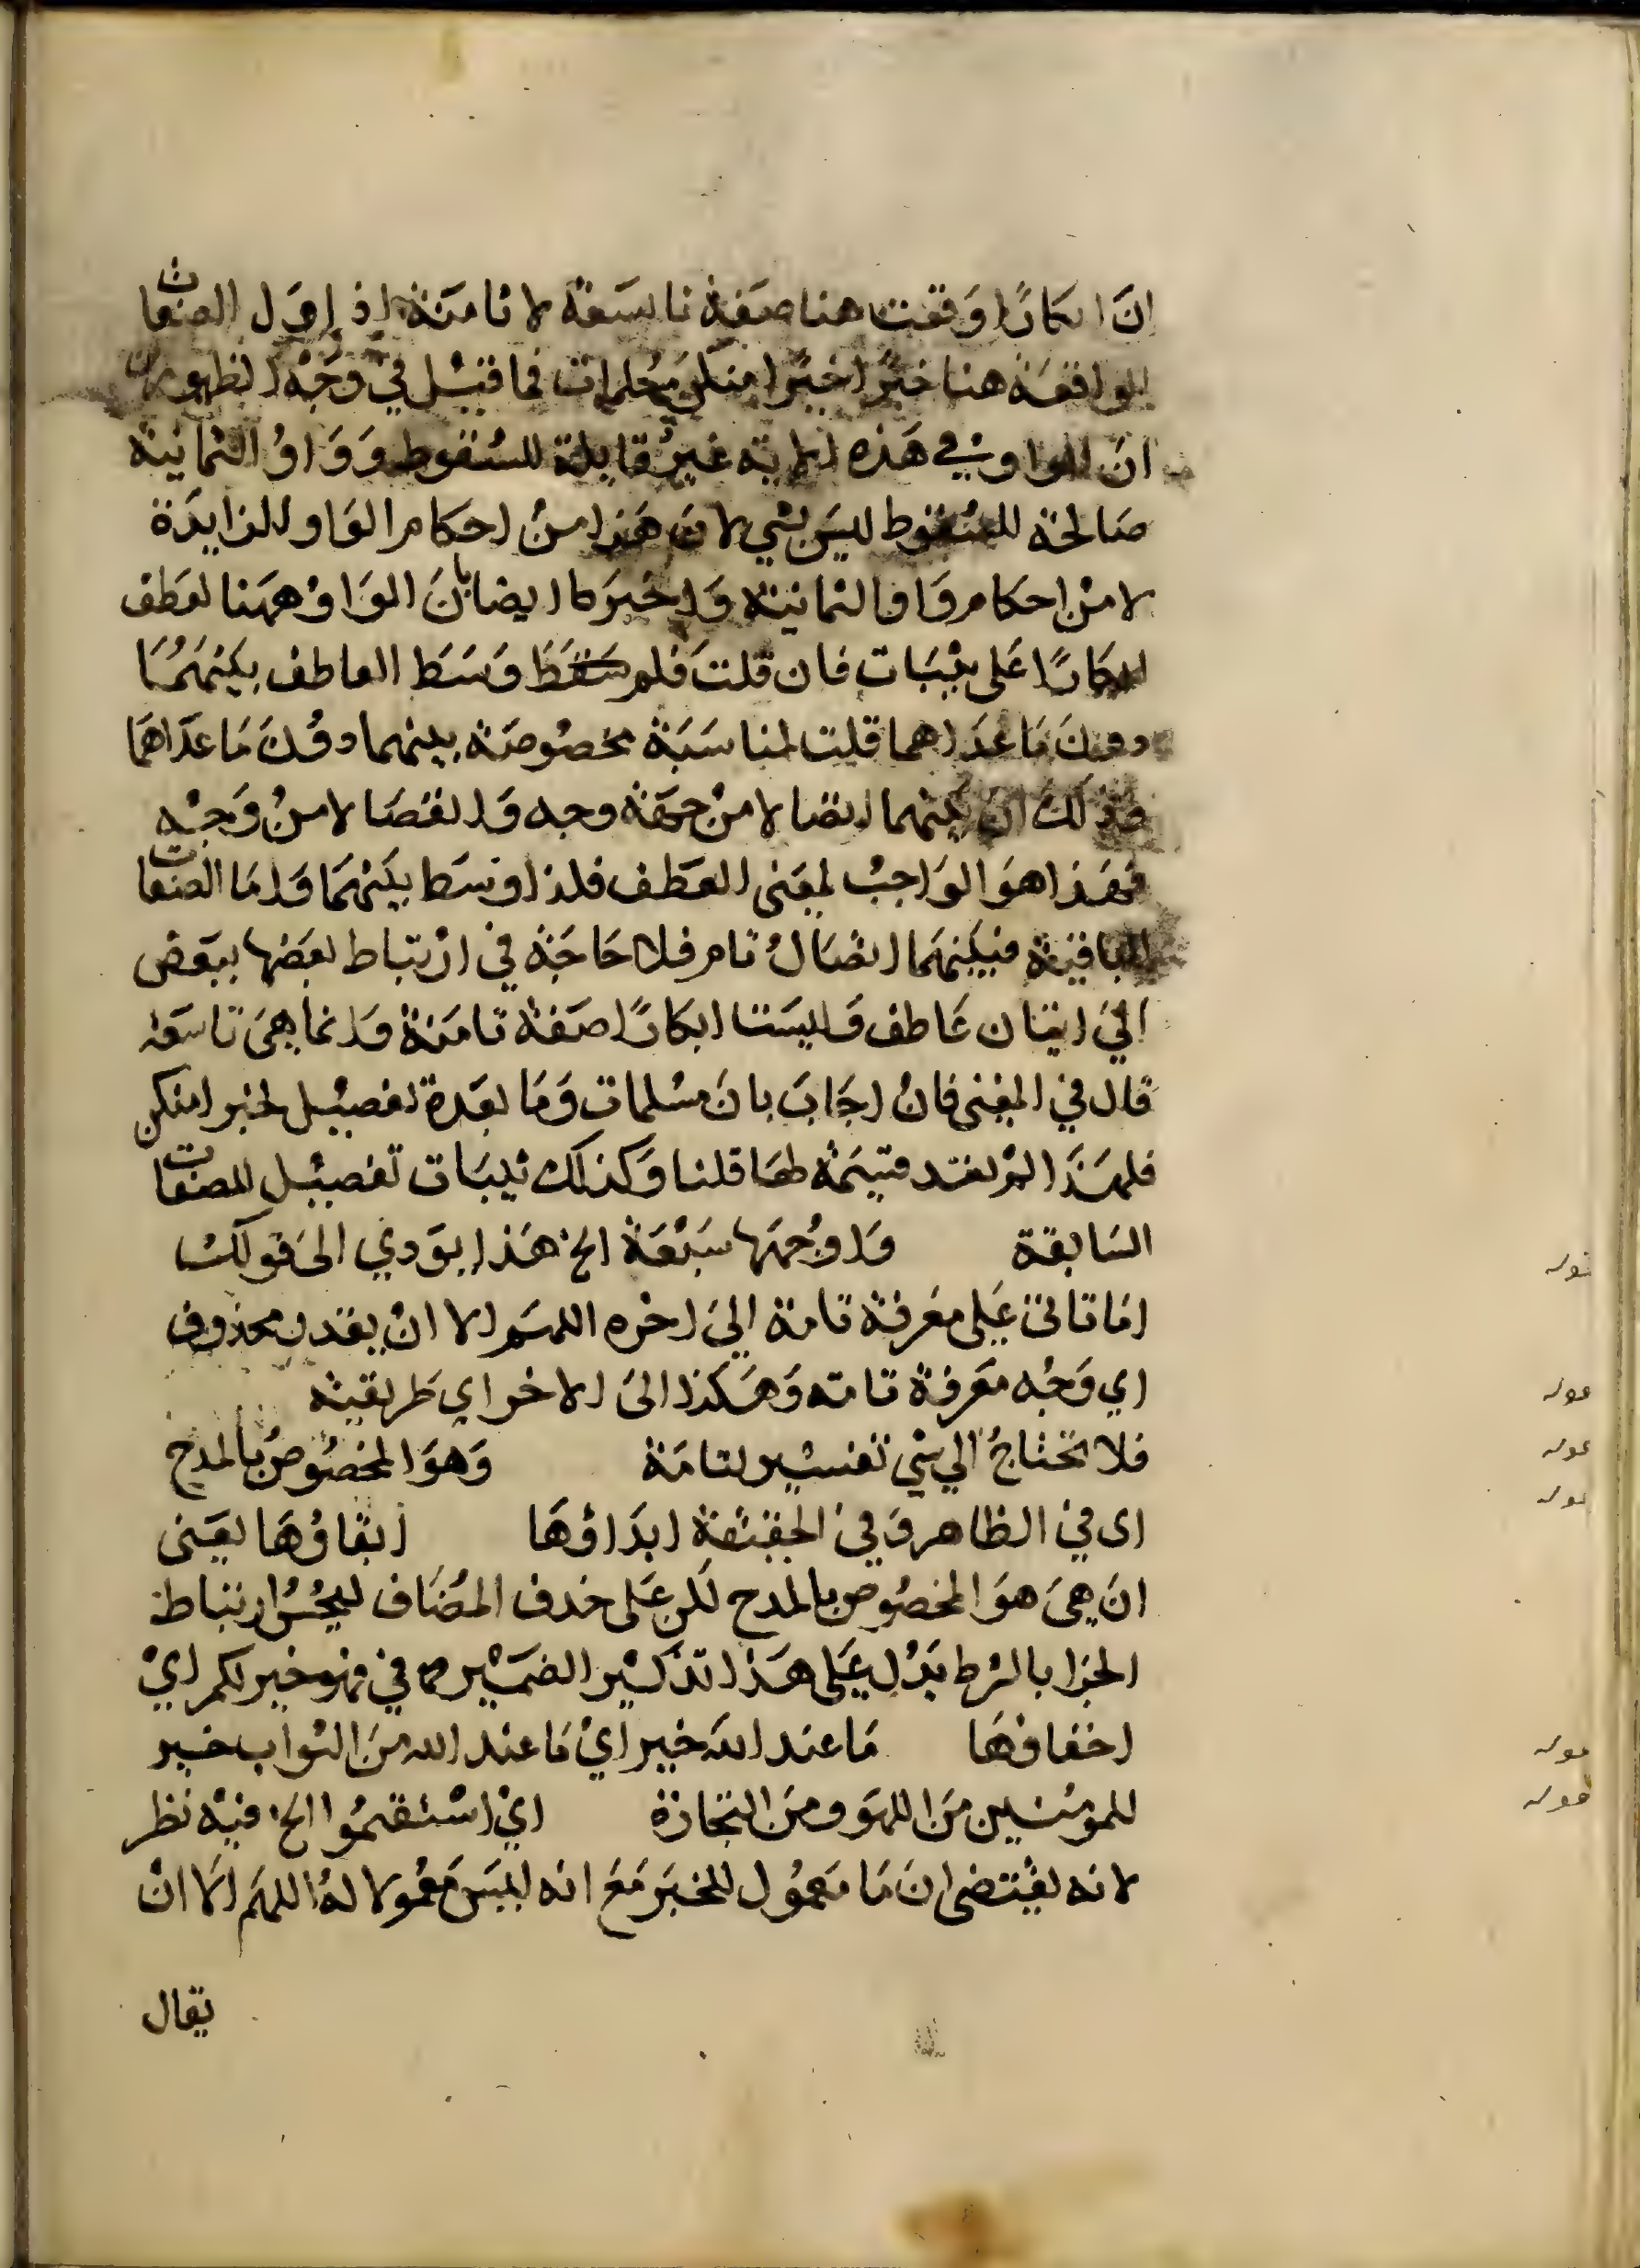 ان ابكارا وقعت هنا صفة تاسعة لا ثامنة اذ اول الصفات
الواقعة هنا خيرا خيرا منكن مسلمات فما قيل في وجه الظهور من
ان الواو في هذه الاية غير قابلة للسقوط وواو الثمانية
صالحة للسقوط ليس بشي لان هذا من احكام الواو الزايدة
لا من احكام واو الثمانية واخبرنا ايضا بان الواو ههنا لعطف
ابكارا على ثيبات فان قلت فلم وسط العاطف بينهما
دون ما عداهما قلت لمناسبة مخصوصة بينهما دون ما عداهما
وذلك ان بينهما اتصالا من جهة وجه وانفصالا من وجه
فهذا هو الواجب لمعنى العطف فلذا وسط بينهما واما الصفات
الباقية فبينهما اتصال تام فلا حاجة في ارتباط بعضها ببعض
الي اتيان عاطف وليست ابكارا صفة ثامنة وانما هي تاسعة
قال في المغني فان اجاب بان مسلمات وما بعده تفصيل لخيرا منكن
فلهذا لم تعد قسيمة لها قلنا وكذلك ثيبات تفصيل للصفات
السابقة واوجهها سبعة الخ هذا يودي الى قولك
اما تاتي على معرفة تامة الي اخره اللهم الا ان يقدر محذوف
اي وجه معرفة تامة وهكذا الى الاخر اي طريقية
فلا تحتاج الي شي تفسير لتامة وهو المخصوص بالمدح
اى في الظاهر وفي الحقيقة ابداؤها ابقاوها يعني
ان هي هو المخصوص بالمدح لكن على حذف المضاف ليحسن ارتباط
الجزا بالشرط يدل على هذا تذكير الضمير في فهو خير لكم اي
اخفاوها ما عند الله خير اي ما عند الله من الثواب خير
للمومنين من اللهو ومن التجارة اي استقيموا الخ فيه نظر
لانه يقتضي ان ما معمول للخبر مع انه ليس معمولا له اللهم الا ان
يقال
قوله
قوله
قوله
قوله
قوله
قوله